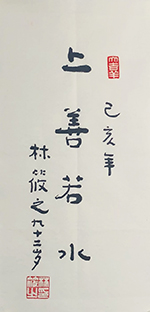 己亥年
上善若水
林筱之九十二岁